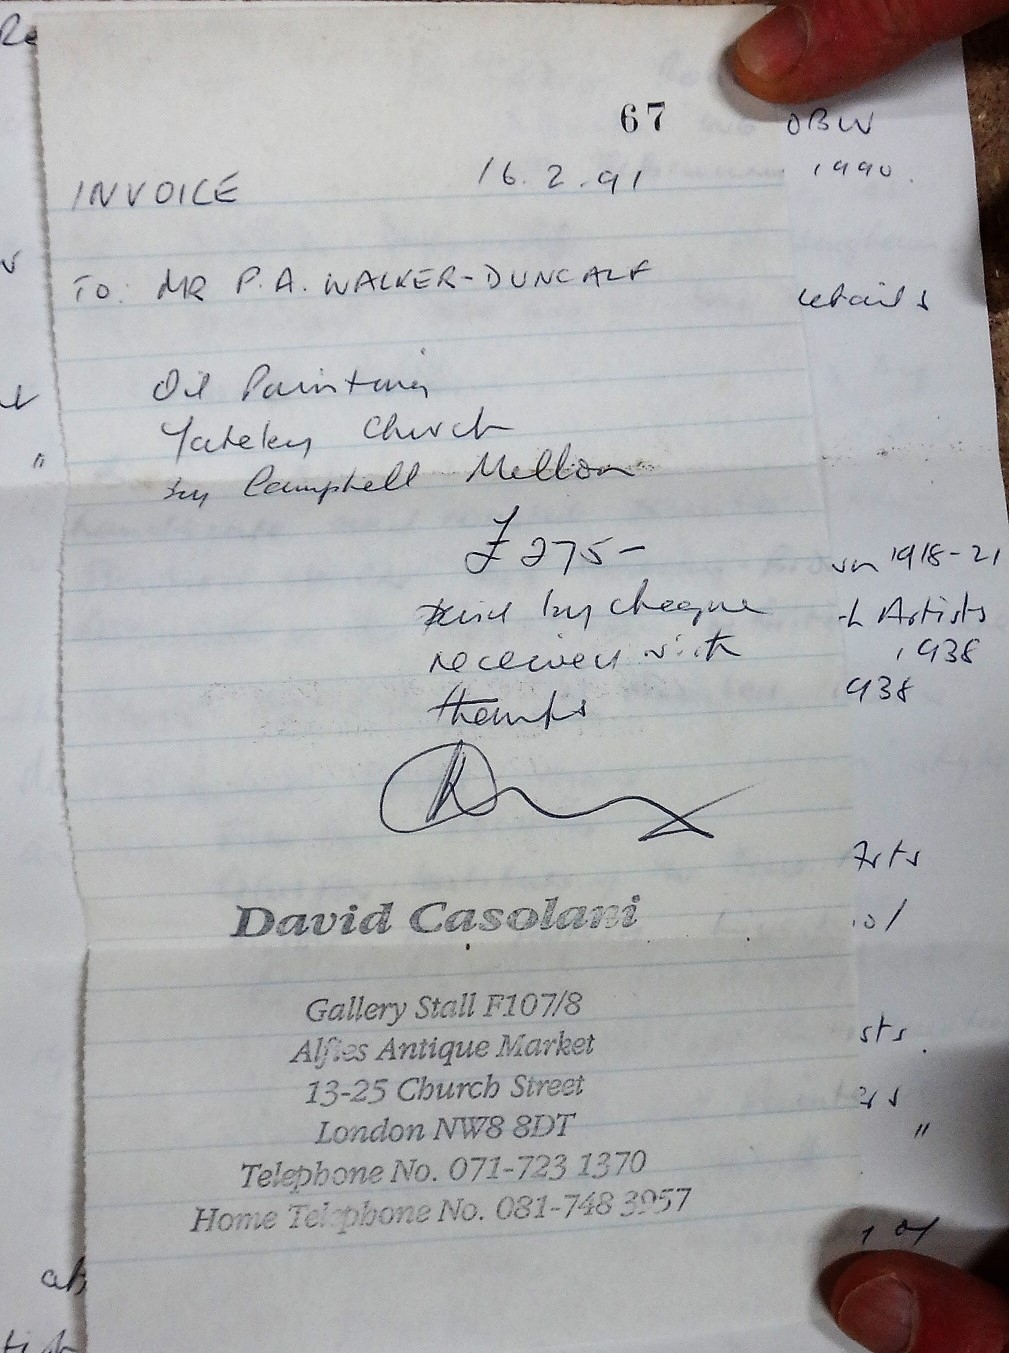 67
INVOICE 16.2.91
TO: MR P.A. WALKER-DUNCALF
Oil Painting
Yateley Church
by Campbell Mellon
£275-
Paid by cheque
received with
thanks
David Casolani
Gallery Stall F107/8
Alfies Antique Market
13-25 Church Street
London NW8 8DT
Telephone No. 071-723 1370
Home Telephone No. 081-748 3957
OBW
1990.
etails
1918-21
Artists
1938
938
Arts
sts.
ers
"